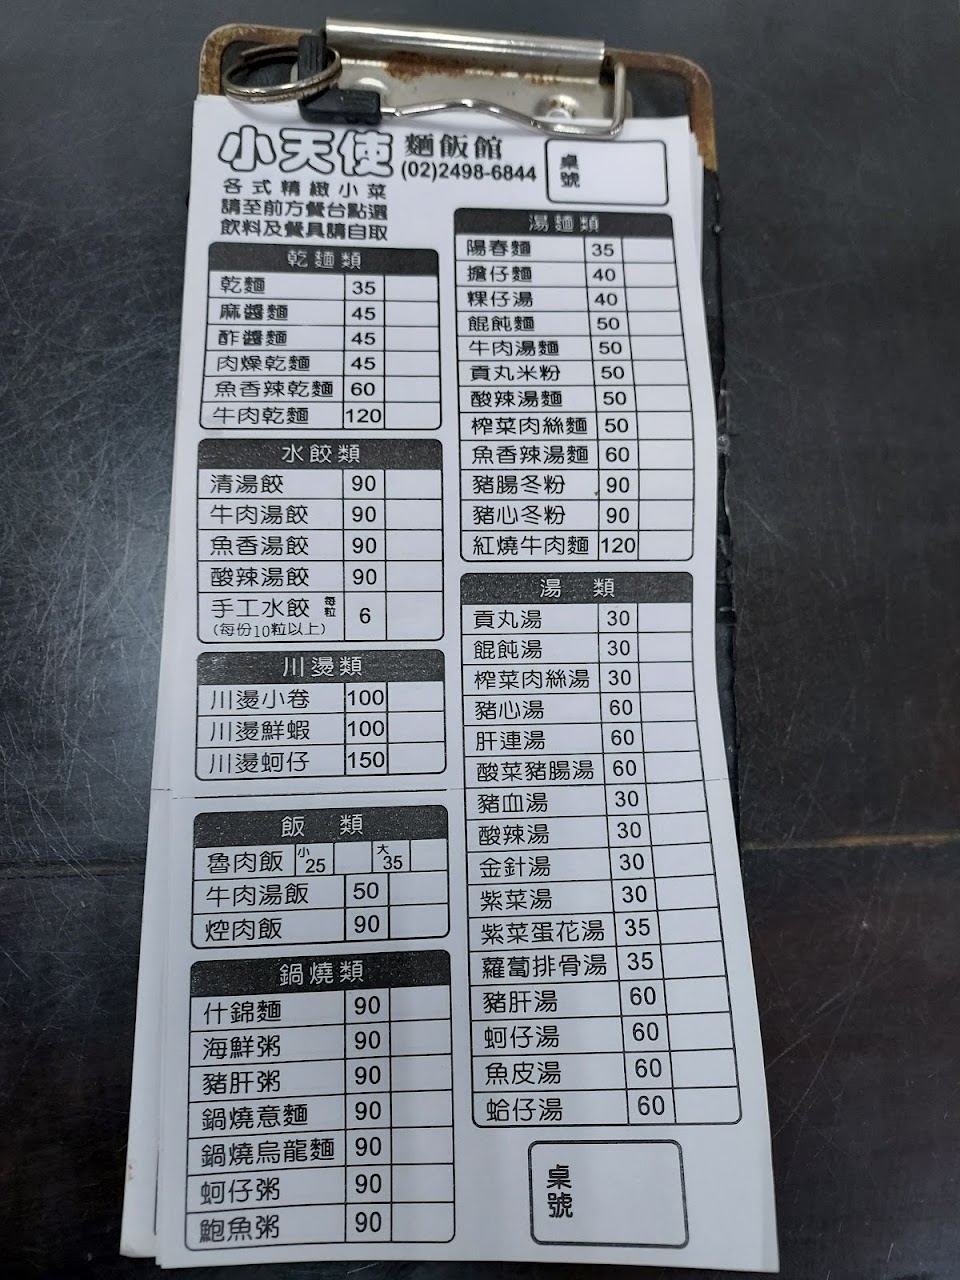 小天使 麵飯館
(02)2498-6844
桌號
各式精緻小菜
請至前方餐台點選
飲料及餐具請自取
乾麵類
乾麵 35
麻醬麵 45
酢醬麵 45
肉燥乾麵 45
魚香辣乾麵 60
牛肉乾麵 120
水餃類
清湯餃 90
牛肉湯餃 90
魚香湯餃 90
酸辣湯餃 90
手工水餃 每粒 6
(每份10粒以上)
川燙類
川燙小卷 100
川燙鮮蝦 100
川燙蚵仔 150
飯 類
魯肉飯 小25 大35
牛肉湯飯 50
焢肉飯 90
鍋燒類
什錦麵 90
海鮮粥 90
豬肝粥 90
鍋燒意麵 90
鍋燒烏龍麵 90
蚵仔粥 90
鮑魚粥 90
湯麵類
陽春麵 35
擔仔麵 40
粿仔湯 40
餛飩麵 50
牛肉湯麵 50
貢丸米粉 50
酸辣湯麵 50
榨菜肉絲麵 50
魚香辣湯麵 60
豬腸冬粉 90
豬心冬粉 90
紅燒牛肉麵 120
湯 類
貢丸湯 30
餛飩湯 30
榨菜肉絲湯 30
豬心湯 60
肝連湯 60
酸菜豬腸湯 60
豬血湯 30
酸辣湯 30
金針湯 30
紫菜湯 30
紫菜蛋花湯 35
蘿蔔排骨湯 35
豬肝湯 60
蚵仔湯 60
魚皮湯 60
蛤仔湯 60
桌號